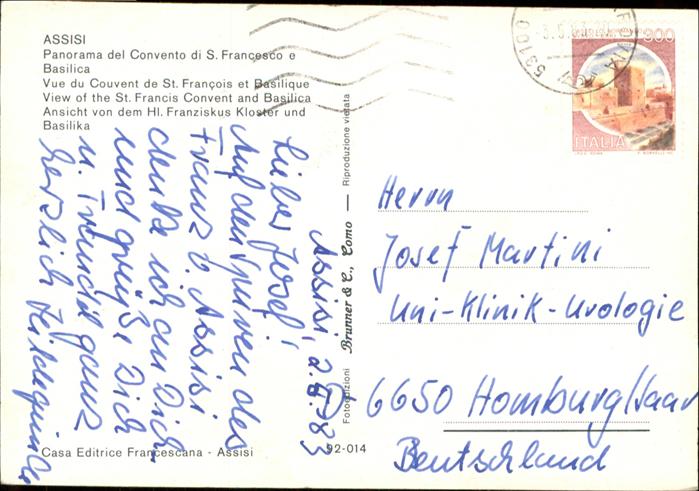 ASSISI
Panorama del Convento di S. Francesco e
Basilica
Vue du Couvent de St. François et Basilique
View of the St. Francis Convent and Basilica
Ansicht von dem Hl. Franziskus Kloster und
Basilika
Assisi, 2.5.83
Lieber Josef!
Auf den Spuren des
Franz v. Assisi
denke ich an Dich
und grüße Dich
u. Freunde ganz
herzlich Hildegunde
Casa Editrice Francescana - Assisi
92-014
Fotoedizioni Brunner & C., Como — Riproduzione vietata
900
ITALIA
Herrn
Josef Martini
Uni-Klinik-Urologie
6650 Homburg/Saar
Deutschland